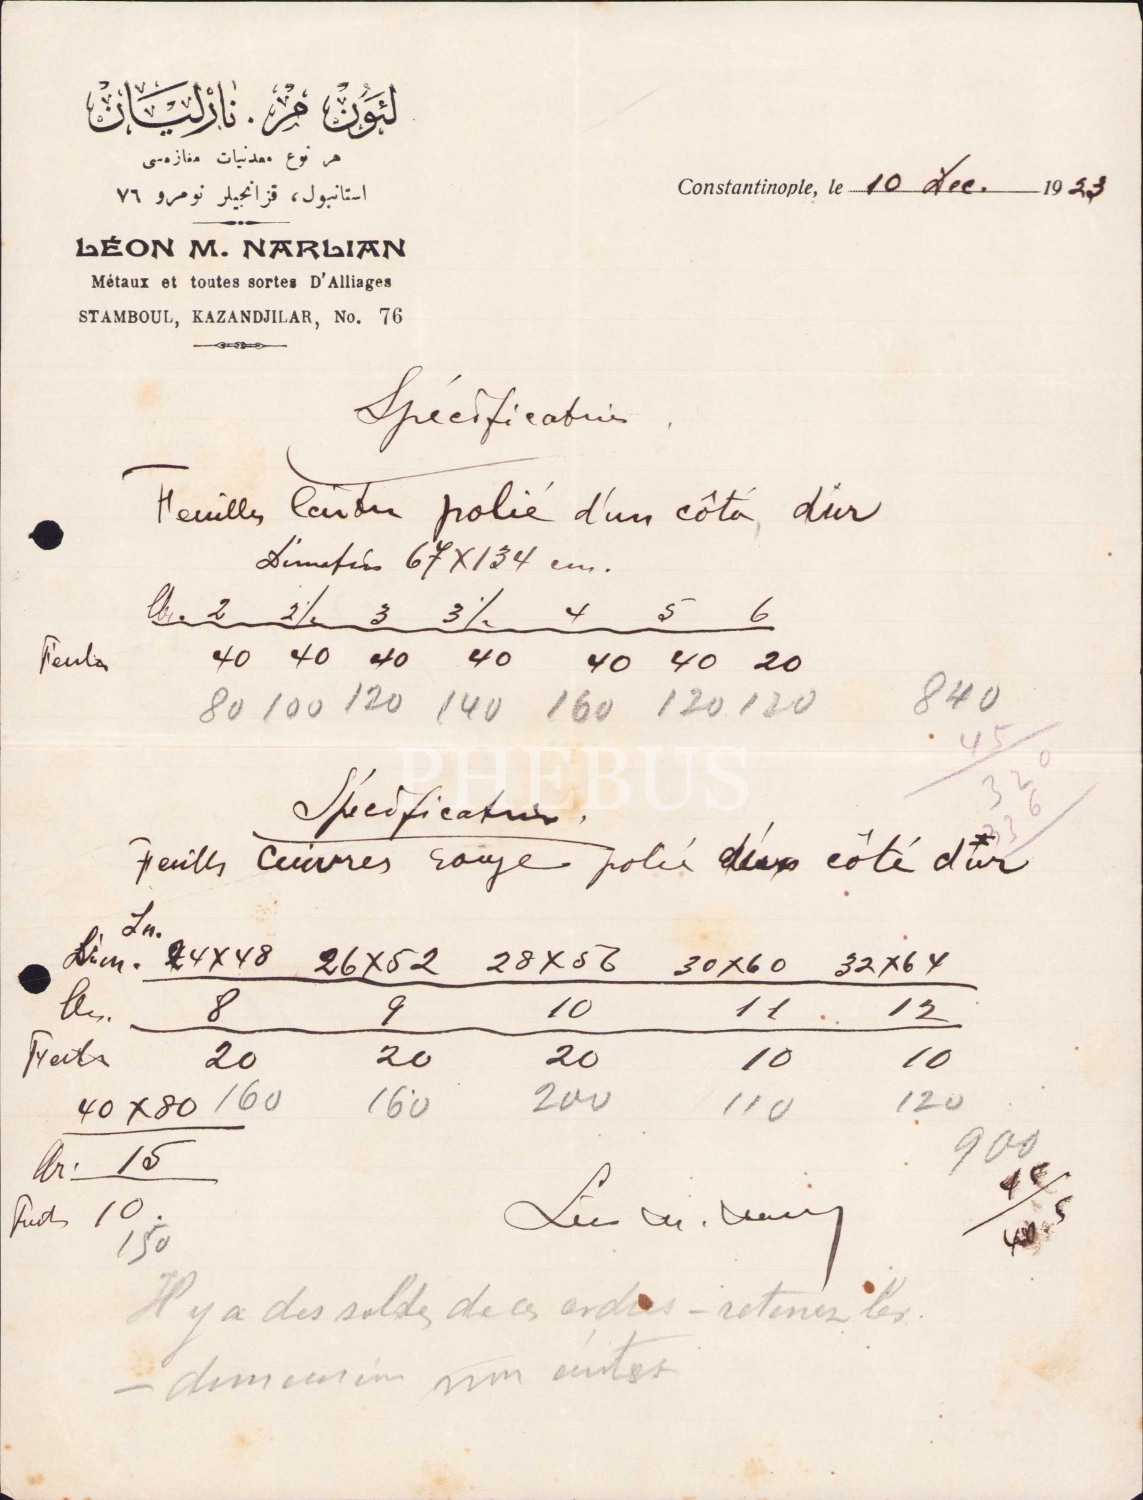 لئون م. نارليان
هر نوع معدنيات مغازه‌سى
استانبول، قزانجيلر نومرو ٧٦
LÉON M. NARLIAN
Métaux et toutes sortes D'Alliages
STAMBOUL, KAZANDJILAR, No. 76
Constantinople, le 10 Dec. 1923
Spécification
Feuilles polié d'un côté, dur
67X134 cm.
2 2½ 3 3½ 4 5 6
40 40 40 40 40 40 20
80 100 120 140 160 120 120 840
45
320
336
PHEBUS
Spécification.
Feuills cuivres rouge polié d'un côté dur
Dim. 24X48 26X52 28X56 30X60 32X64
8 9 10 11 12
20 20 20 10 10
40X80 160 160 200 110 120
900
15
10.
150
45
40.5
Léon M.
Il y a des soldes de ces ordres – retenez les
– dimension non